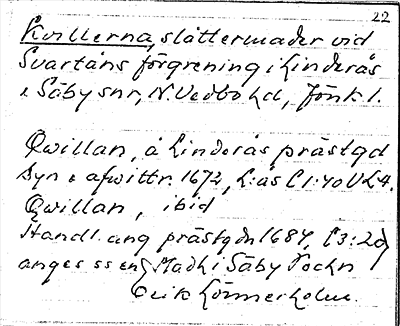 22
Kvillerna, slåttermader vid
Svartåns förgrening i Linderås
i Säby snr, N. Vedbo hd, Jönk l.
Qwillan, å Linderås prästgd
Syn o afwittr. 1672, L:ås C1:40 VL4.
Qwillan, ibid
Handl. ang prästgdn 1687, C3:2a)
anges ss en Madh i Säby Sochn
Erik Lönnerholm.